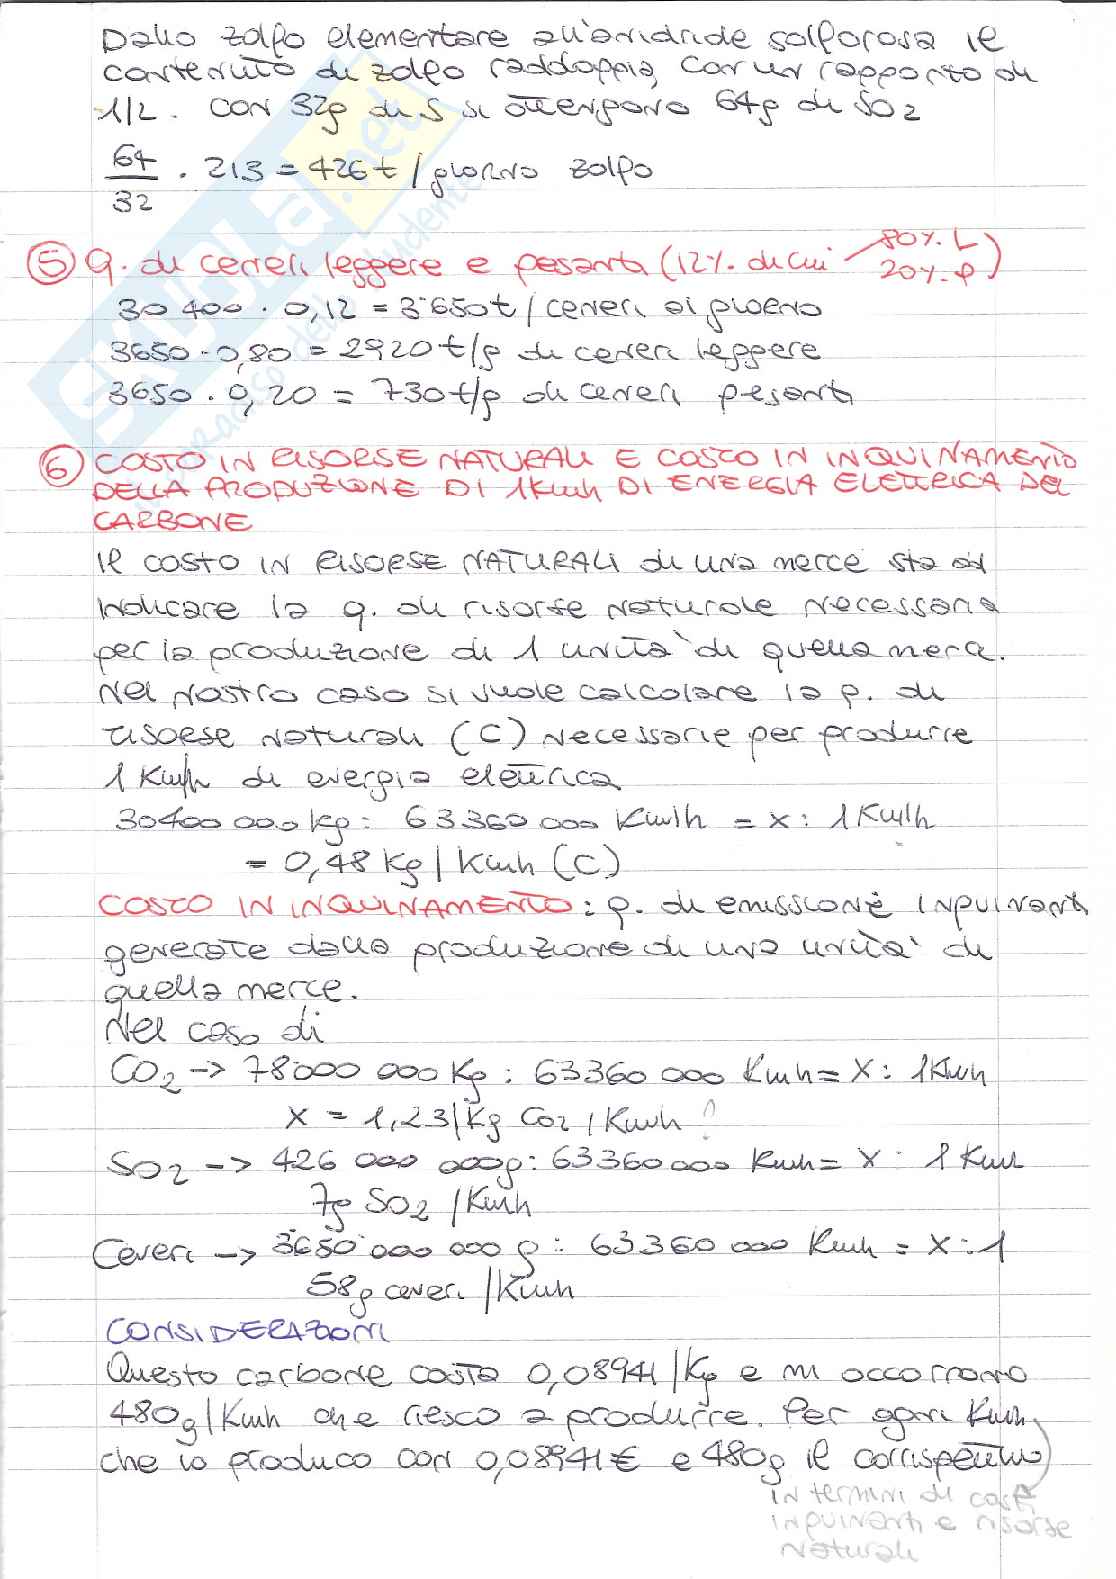 Dallo zolfo elementare all'anidride solforosa il
contenuto di zolfo raddoppia, con un rapporto di
1/2. Con 32g di S si ottengono 64g di SO2
64/32 · 213 = 426 t/giorno zolfo
5 Q. di ceneri leggere e pesanti (12% di cui 80% L
20% P)
30 400 · 0,12 = 3650 t/ceneri al giorno
3650 · 0,80 = 2920 t/g di ceneri leggere
3650 · 0,20 = 730 t/g di ceneri pesanti
6 COSTO IN RISORSE NATURALI E COSTO IN INQUINAMENTO
DELLA PRODUZIONE DI 1 Kwh DI ENERGIA ELETTRICA DEL
CARBONE
Il costo IN RISORSE NATURALI di una merce sta ad
indicare la q. di risorse naturale necessaria
per la produzione di 1 unità di quella merce.
Nel nostro caso si vuole calcolare la q. di
risorse naturali (C) necessarie per produrre
1 Kwh di energia elettrica
30400 000 kg : 63360 000 Kwh = x : 1 Kwh
= 0,48 Kg/Kwh (C)
COSTO IN INQUINAMENTO : q. di emissione inquinanti
generate dalla produzione di una unità di
quella merce.
Nel caso di
CO2 -> 78000 000 Kg : 63360 000 Kwh = X : 1 Kwh
X = 1,23/Kg CO2/Kwh ?
SO2 -> 426 000 000g : 63360 000 Kwh = X : 1 Kwh
7g SO2 /Kwh
Ceneri -> 3650 000 000 g : 63360 000 Kwh = X : 1
58g ceneri /Kwh
CONSIDERAZIONI
Questo carbone costa 0,08941/Kg e mi occorrono
480g/Kwh che riesco a produrre. Per ogni Kwh
che io produco con 0,08941€ e 480g il corrispettivo
in termini di costi
inquinanti e risorse
naturali
SKUOLA.net
il paradiso dello studente